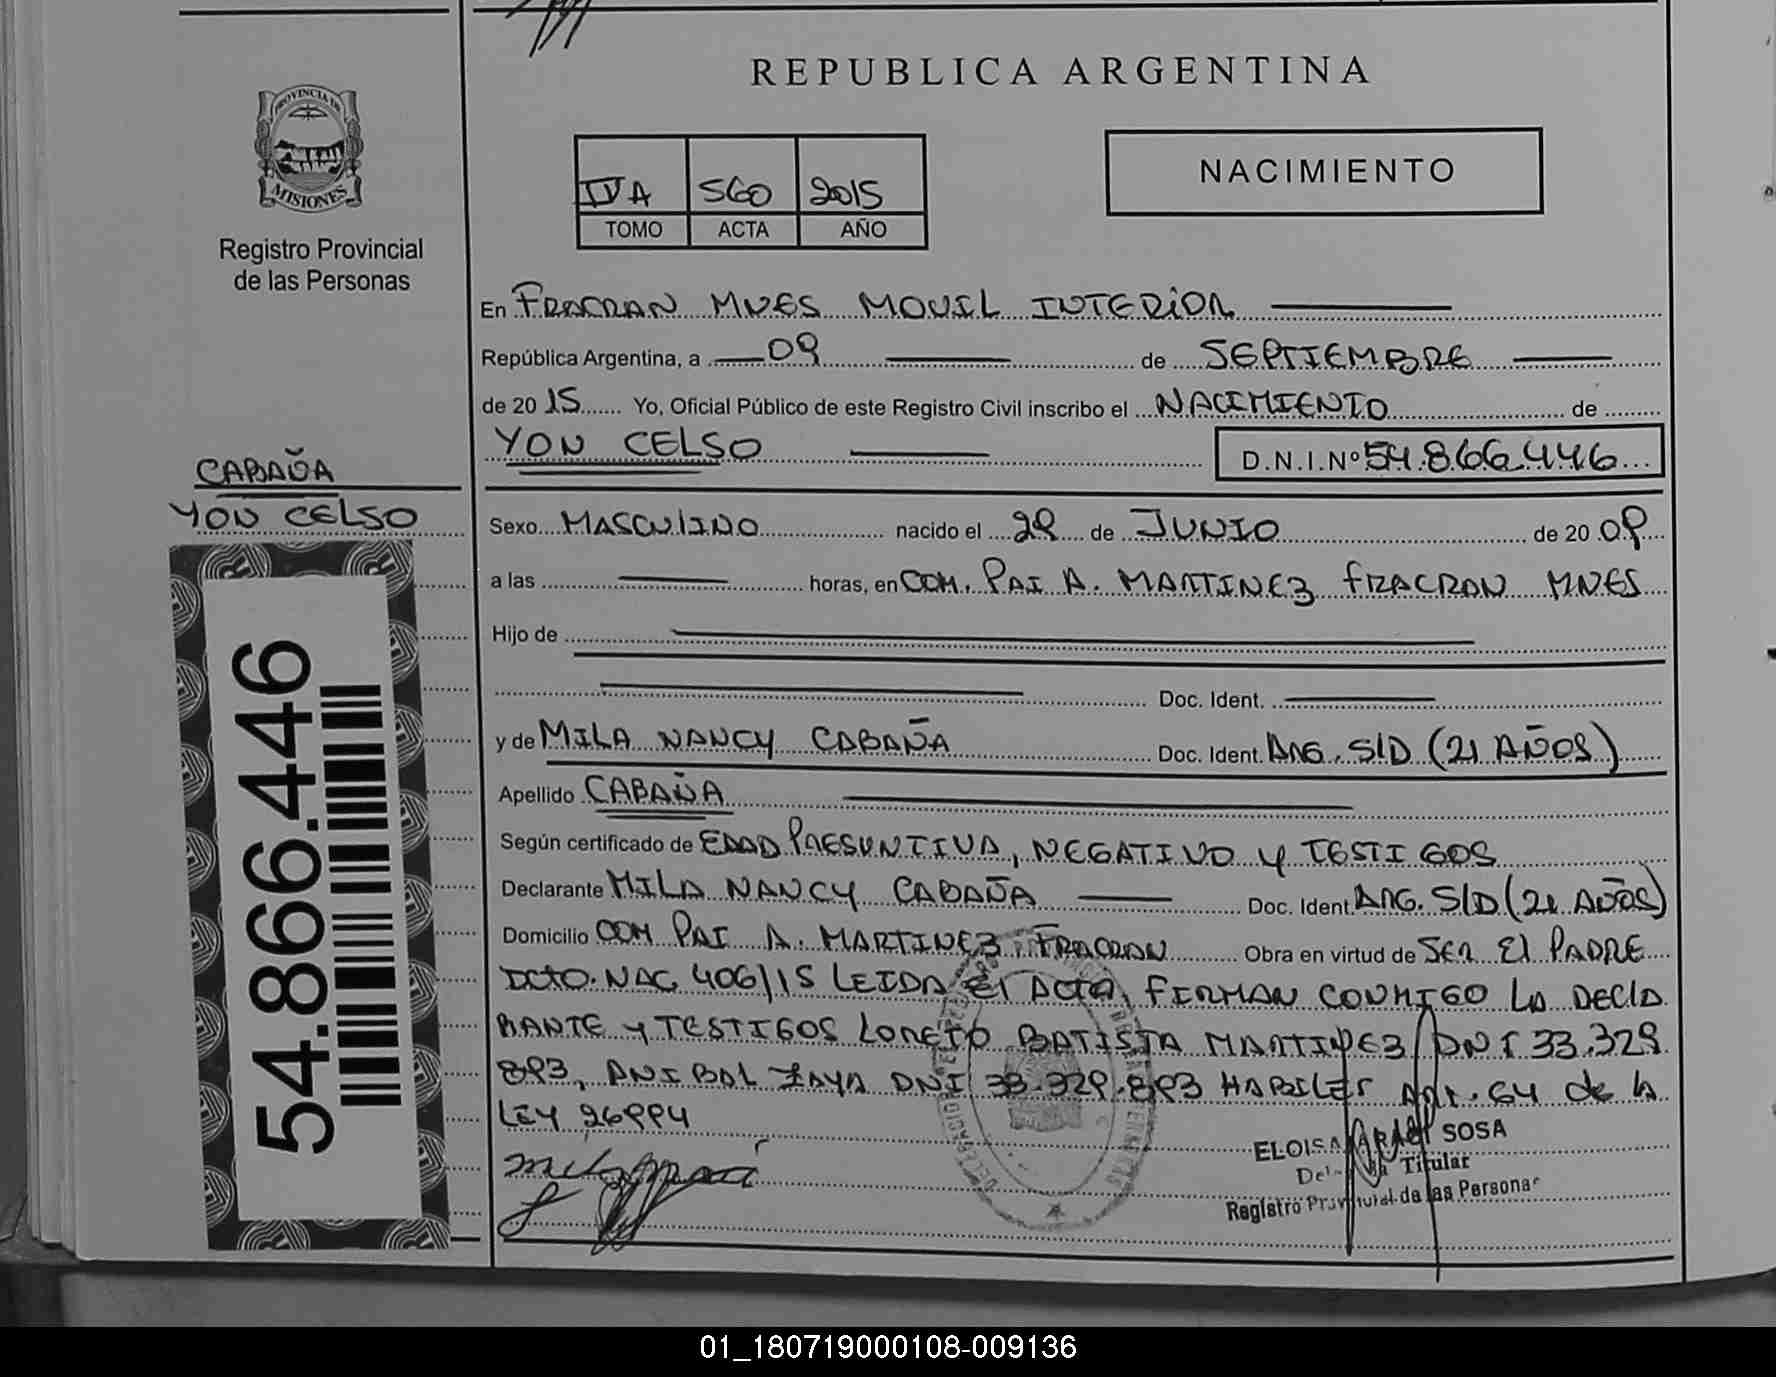 REPUBLICA ARGENTINA
PROVINCIA DE
MISIONES
Registro Provincial
de las Personas
IV A 560 2015
TOMO ACTA AÑO
NACIMIENTO
En FRACRAN MNES MOVIL INTERIOR
República Argentina, a 09 de SEPTIEMBRE
de 20 15 Yo, Oficial Público de este Registro Civil inscribo el NACIMIENTO de
YON CELSO D.N.I.Nº 54.866.446
CABAÑA
YON CELSO
54.866.446
Sexo MASCULINO nacido el 29 de JUNIO de 20 09
a las horas, en COM. PAI A. MARTINEZ FRACRAN MNES
Hijo de
Doc. Ident.
y de MILA NANCY CABAÑA Doc. Ident. ARG. S/D (21 AÑOS)
Apellido CABAÑA
Según certificado de EDAD PRESUNTIVA, NEGATIVO Y TESTIGOS
Declarante MILA NANCY CABAÑA Doc. Ident. ARG. S/D (21 AÑOS)
Domicilio COM PAI A. MARTINEZ FRACRAN Obra en virtud de SER El PADRE
DCTO. NAC 406/15 LEIDA El ACTA, FIRMAN CONMIGO LA DECLA
RANTE Y TESTIGOS LORETO BATISTA MARTINEZ DNI 33.329
893, ANIBAL ZAYA DNI 33.329.893 HABILES ART. 64 de la
LEY 26994
ELOISA SOSA
Titular
Registro Provincial de las Personas
01_180719000108-009136